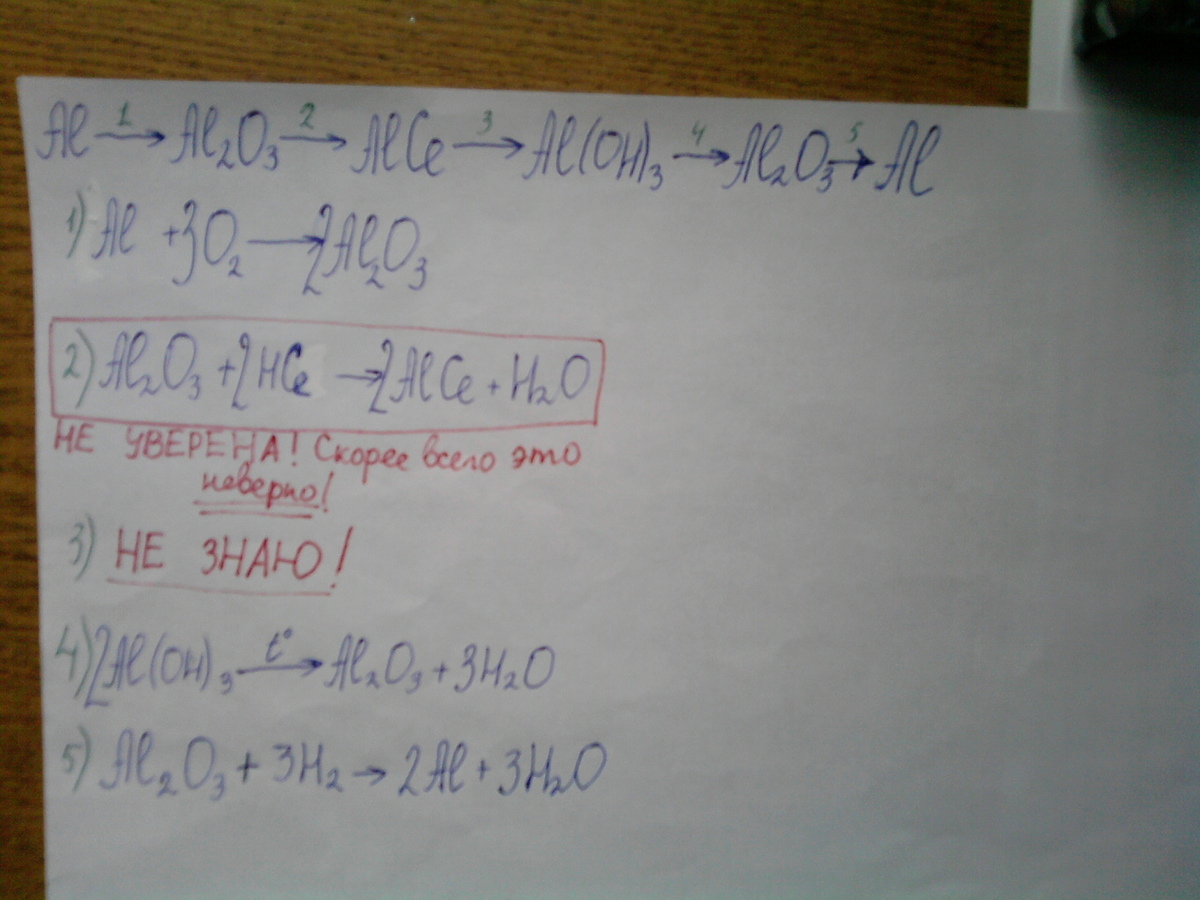 Al 1→ Al₂O₃ 2→ AlCl 3→ Al(OH)₃ 4→ Al₂O₃ 5→ Al
1) Al + 3O₂ → 2Al₂O₃
2) Al₂O₃ + 2HCl → 2AlCl + H₂O
НЕ УВЕРЕНА! Скорее всего это
неверно!
3) НЕ ЗНАЮ!
4) 2Al(OH)₃ t°→ Al₂O₃ + 3H₂O
5) Al₂O₃ + 3H₂ → 2Al + 3H₂O